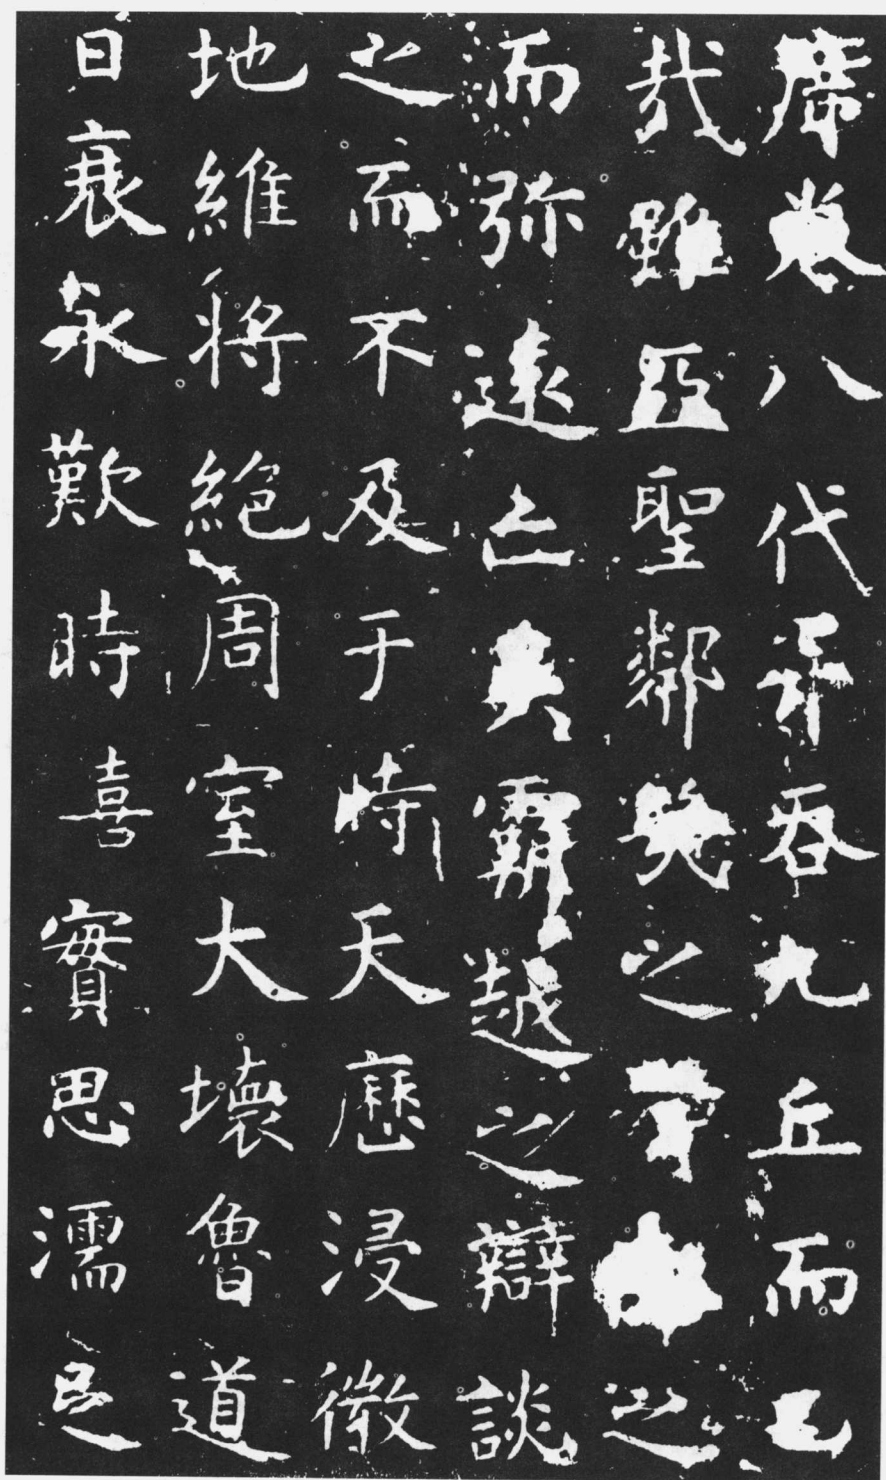 席卷八代并吞九丘而已
哉雖亞聖鄰幾之智之
而弥遠亡吳霸越之辯談
之而不及于時天歷浸微
地維將絕周室大壞魯道
日衰永歎時喜實思濡足